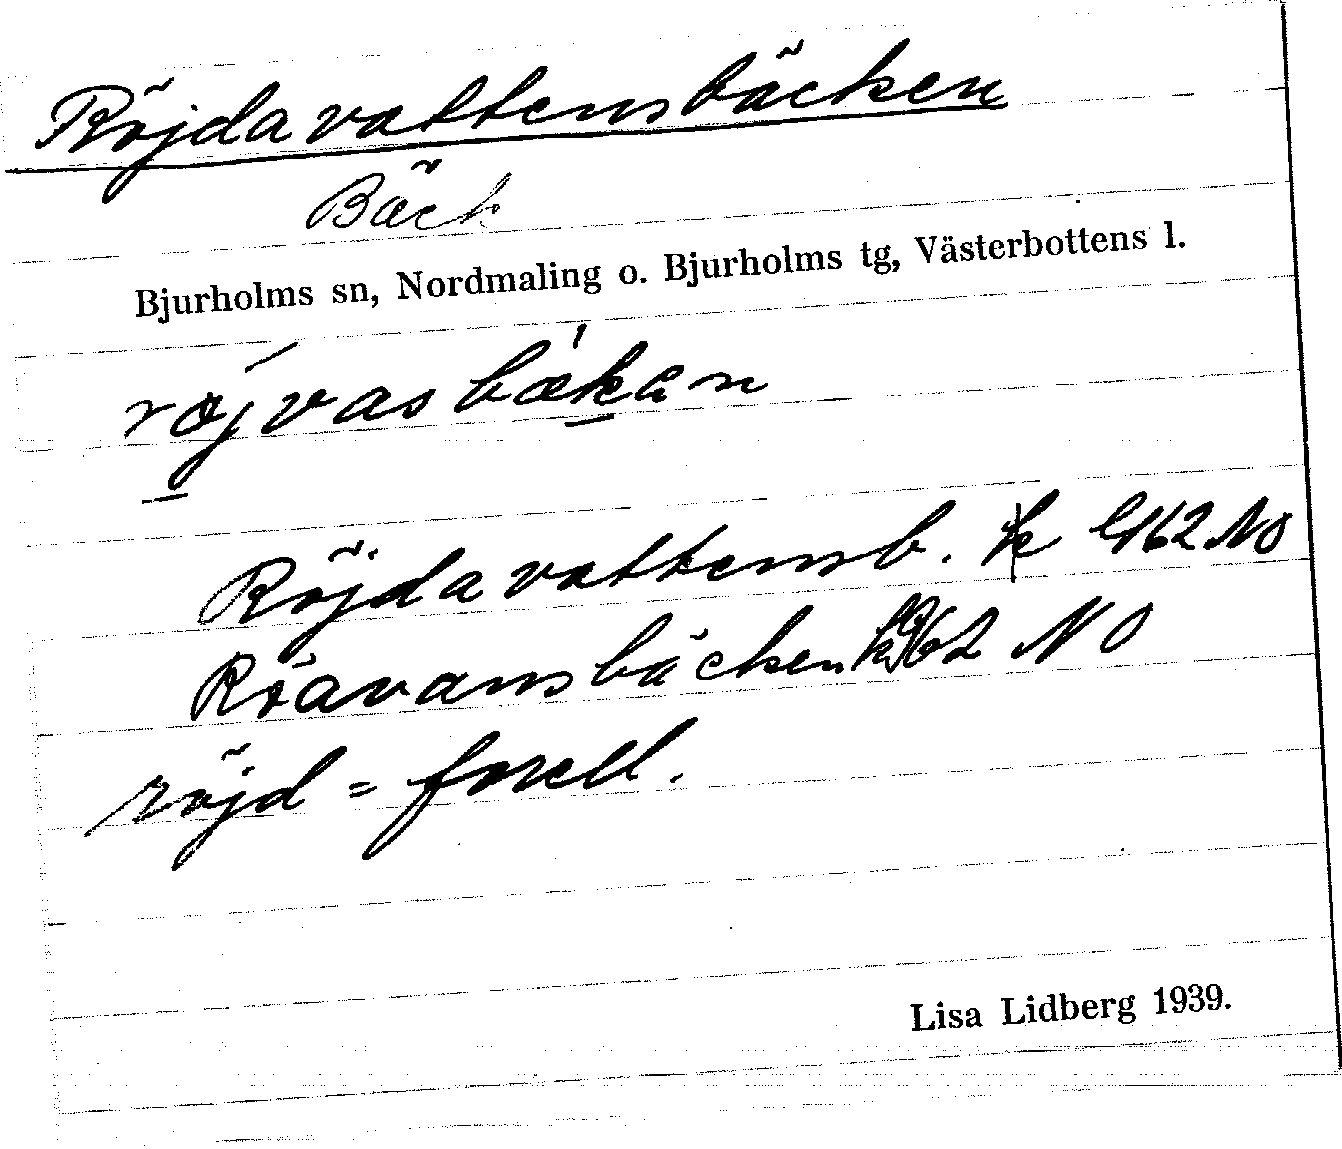 Röjdavattensbäcken
Bäck
Bjurholms sn, Nordmaling o. Bjurholms tg, Västerbottens l.
röjvasbækan
Röjdavattensb. k 162 NO
Röåvansbäcken 162 NO
röjd = forell.
Lisa Lidberg 1939.